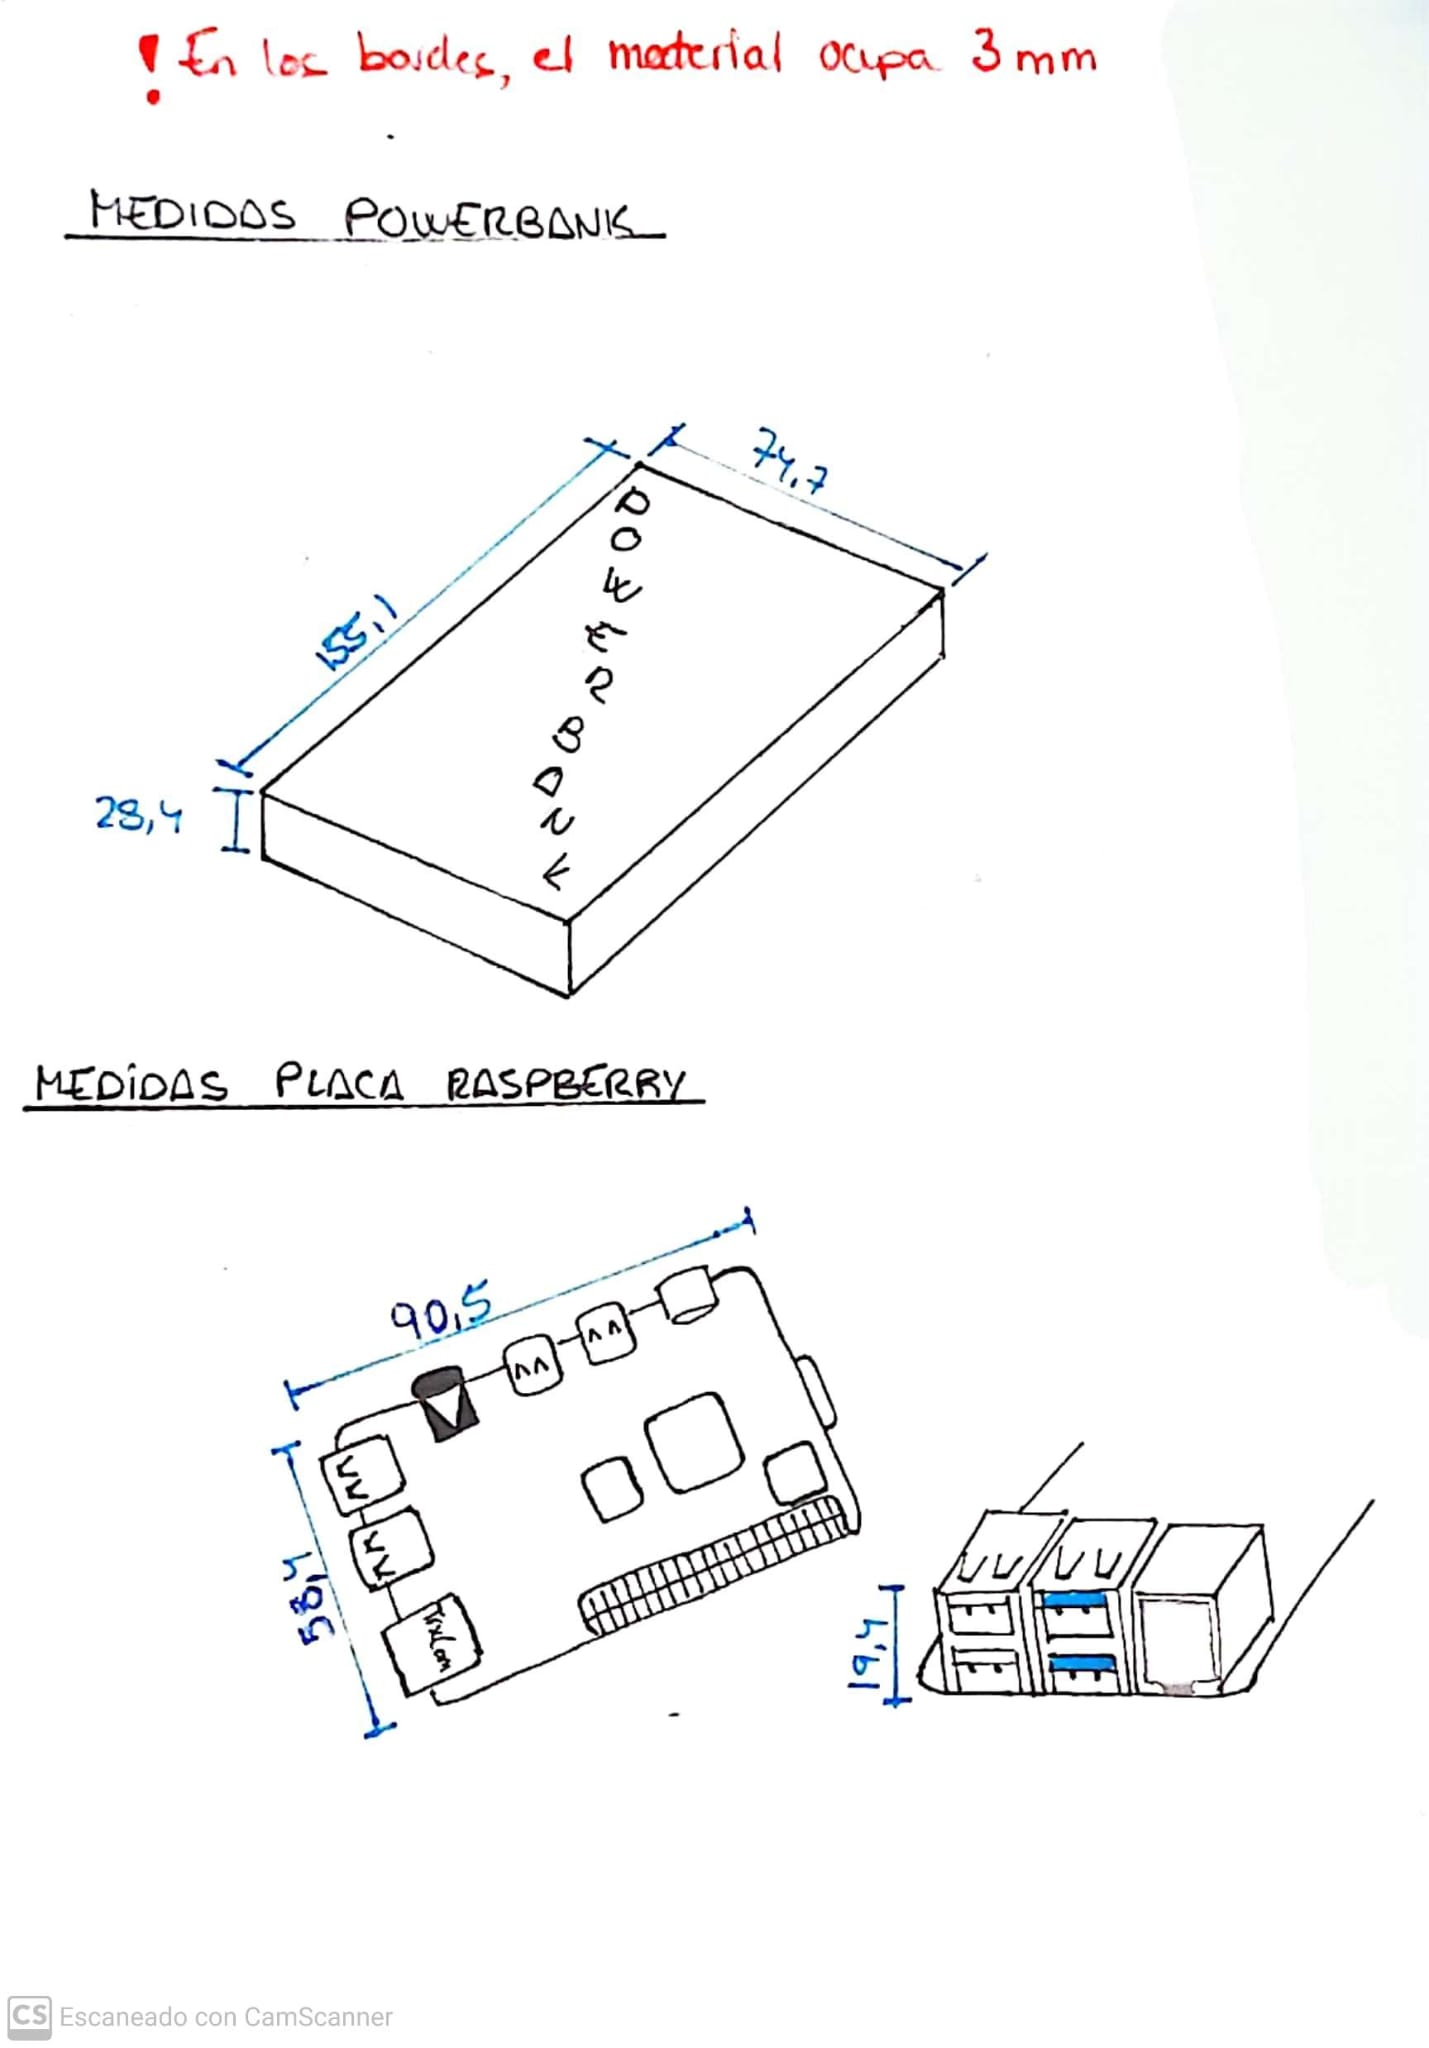 ! En los bordes, el material ocupa 3 mm
MEDIDAS POWERBANK
74,7
155,1
28,4
POWERBANK
MEDiDAS PLACA RASPBERRY
90,5
58,4
19,4
CS Escaneado con CamScanner